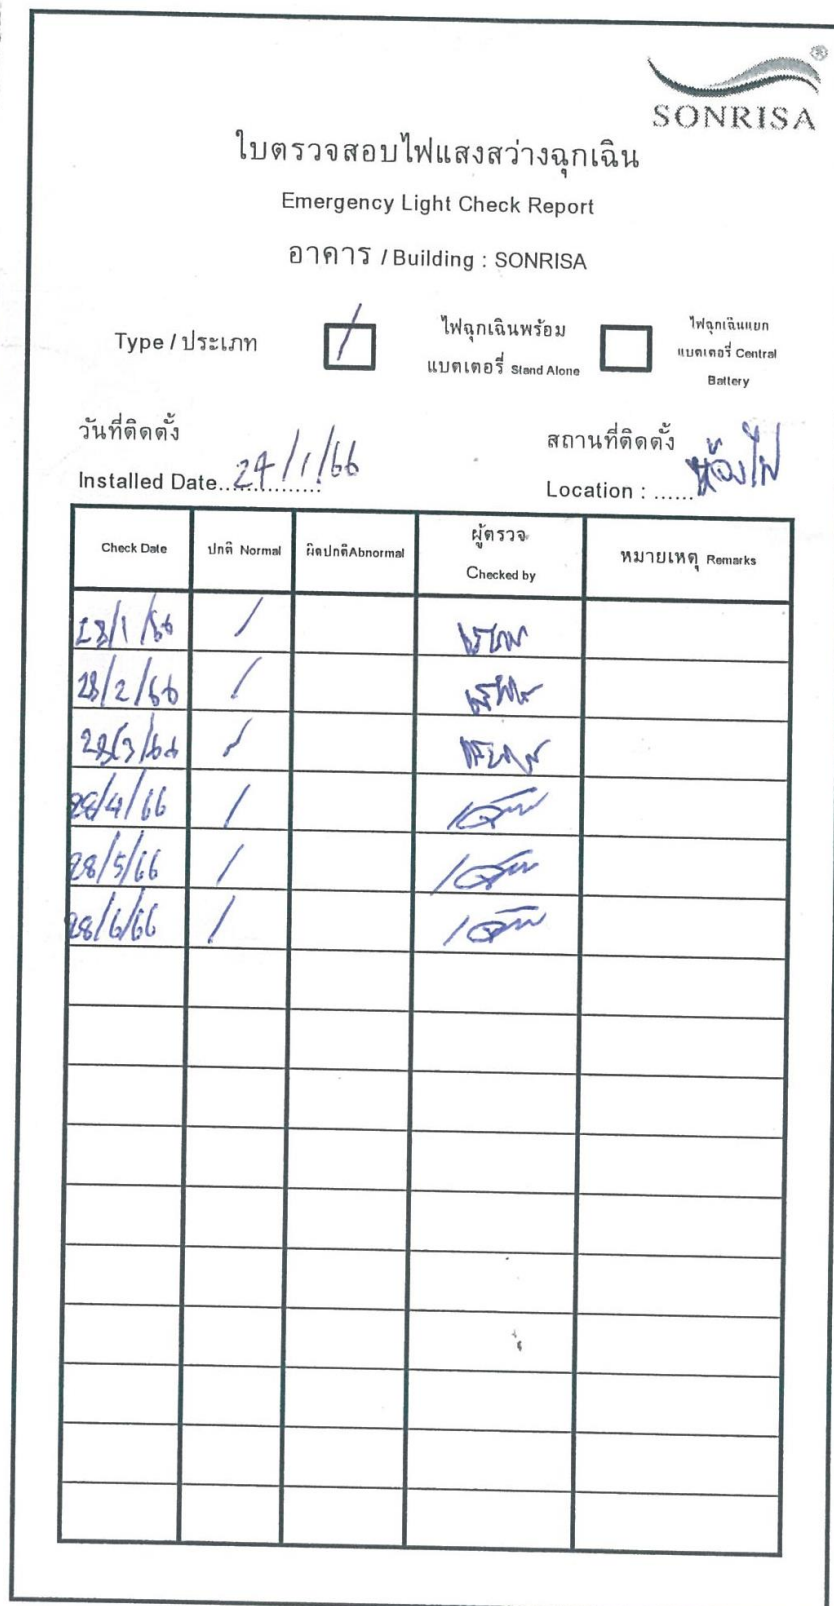 SONRISA
ใบตรวจสอบไฟแสงสว่างฉุกเฉิน
Emergency Light Check Report
อาคาร / Building : SONRISA
Type / ประเภท / ไฟฉุกเฉินพร้อม
แบตเตอรี่ Stand Alone
ไฟฉุกเฉินแยก
แบตเตอรี่ Central
Battery
วันที่ติดตั้ง
Installed Date...............24/1/66
สถานที่ติดตั้ง
Location : ......ห้องไฟ
Check Date ปกติ Normal ผิดปกติAbnormal ผู้ตรวจ Checked by หมายเหตุ Remarks
28/1/66 /
28/2/66 /
28/3/66 /
28/4/66 /
28/5/66 /
28/6/66 /